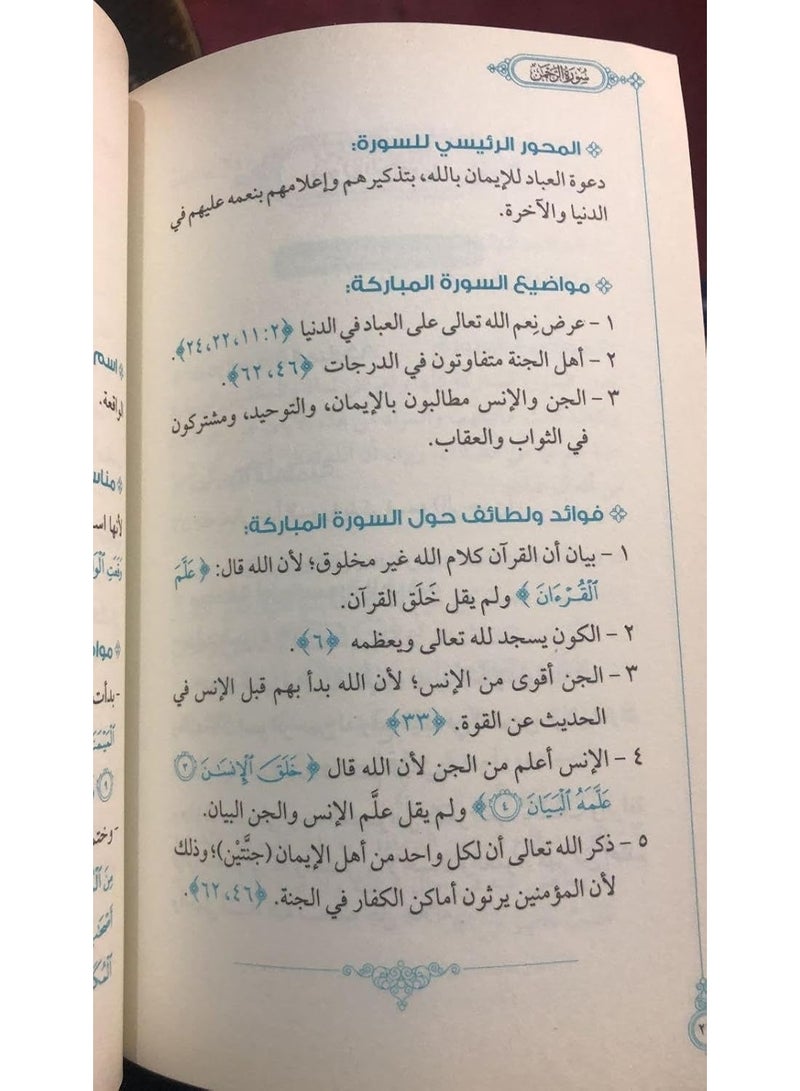 سورة الرحمن
المحور الرئيسي للسورة:
دعوة العباد للإيمان بالله، بتذكيرهم وإعلامهم بنعمه عليهم في
الدنيا والآخرة.
مواضيع السورة المباركة:
١ - عرض نِعم الله تعالى على العباد في الدنيا ﴿٢: ١١، ٢٢، ٢٤﴾.
٢ - أهل الجنة متفاوتون في الدرجات ﴿٤٦، ٦٢﴾.
٣ - الجن والإنس مطالبون بالإيمان، والتوحيد، ومشتركون
في الثواب والعقاب.
فوائد ولطائف حول السورة المباركة:
١ - بيان أن القرآن كلام الله غير مخلوق؛ لأن الله قال: ﴿عَلَّمَ
ٱلْقُرْءَانَ﴾ ولم يقل خَلَق القرآن.
٢ - الكون يسجد لله تعالى ويعظمه ﴿٦﴾.
٣ - الجن أقوى من الإنس؛ لأن الله بدأ بهم قبل الإنس في
الحديث عن القوة. ﴿٣٣﴾
٤ - الإنس أعلم من الجن لأن الله قال ﴿خَلَقَ ٱلْإِنسَٰنَ ٣
عَلَّمَهُ ٱلْبَيَانَ ٤﴾ ولم يقل علَّم الإنس والجن البيان.
٥ - ذكر الله تعالى أن لكل واحد من أهل الإيمان (جنَّتيْن)؛ وذلك
لأن المؤمنين يرثون أماكن الكفار في الجنة. ﴿٤٦، ٦٢﴾.